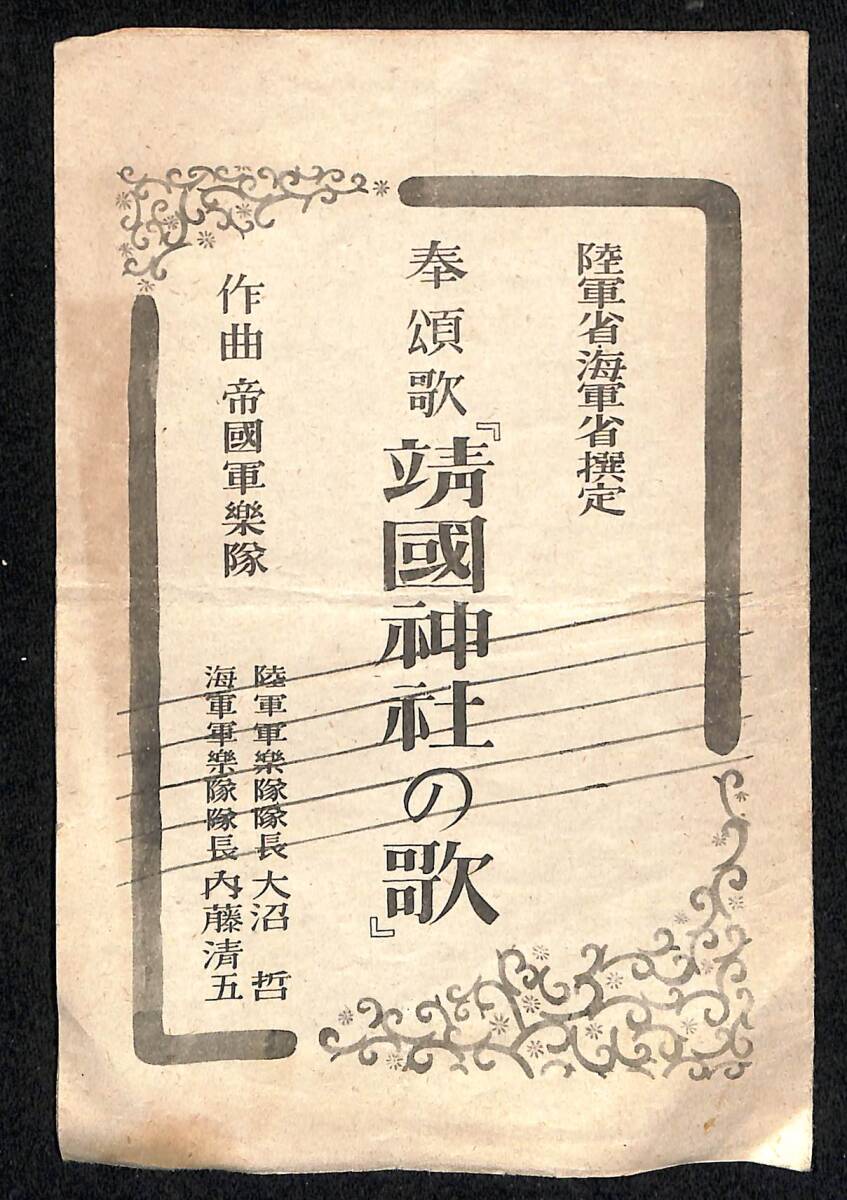 陸軍省海軍省撰定
奉頌歌『靖國神社の歌』
作曲 帝國軍樂隊
陸軍軍樂隊隊長 大沼 哲
海軍軍樂隊隊長 內藤淸五